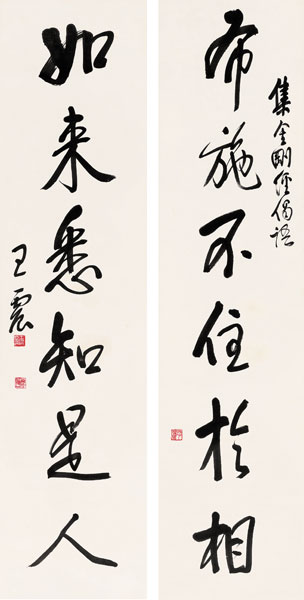 集金剛經偈語
布施不住於相
如来悉知是人
王震